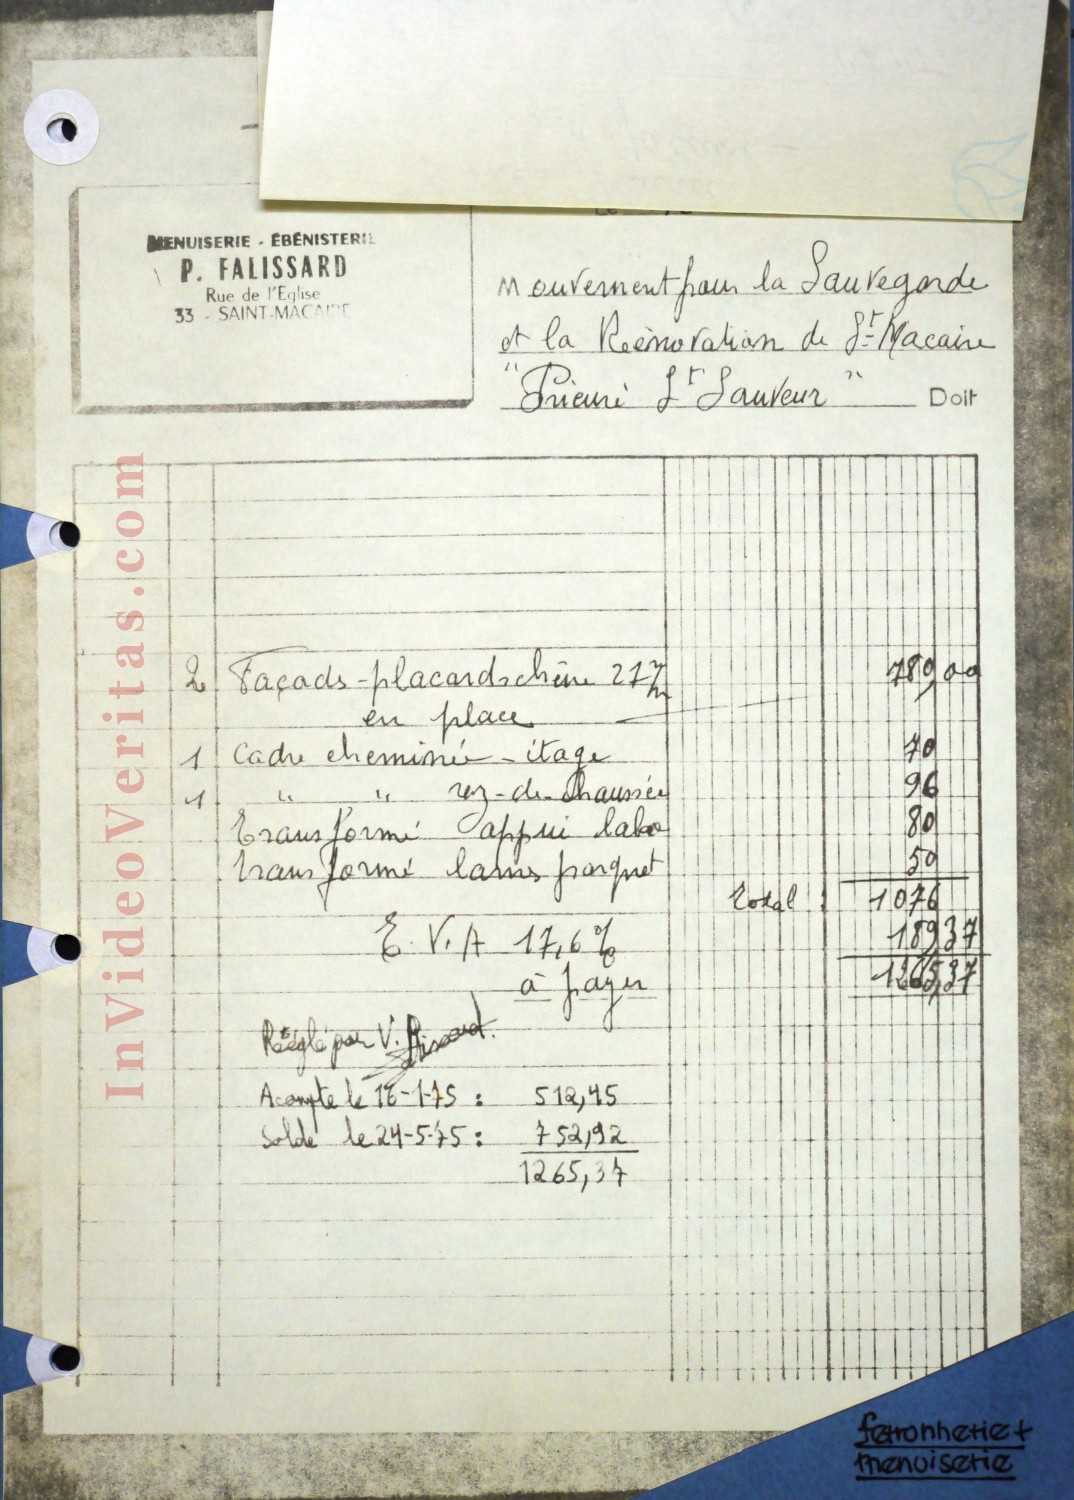 MENUISERIE - ÉBÉNISTERIE
P. FALISSARD
Rue de l'Eglise
33 - SAINT-MACAIRE
Mouvement pour la Sauvegarde
et la Réénovation de St-Macaire
"Prieuré St Sauveur" Doit
2 Façads-placards chêne 27 m/m 789,00
en place
1 Cadre cheminée - étage 70
1 " " rez-de-chaussée 96
transformé appui labo 80
transformé lames parquet 50
total : 1076
T.V.A 17,6% 189,37
à payer 1265,37
Réglé par V.
Acompte le 16-1-75 : 512,45
Solde le 24-5-75 : 752,92
1265,37
InVideoVeritas.com
ferronnerie +
menuiserie